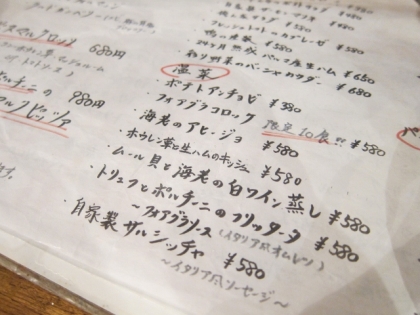 680円
980円
ポルチーニの
フレッシュトマトのカプレーゼ ¥580
鴨の燻製 ¥580
24ヶ月熟成 パルマ産生ハム ¥680
彩り野菜のバーニャカウダー ¥680
温菜
・ポテトアンチョビ ¥380
・フォアグラコロッケ 限定10食!! ¥580
・海老のアヒージョ ¥580
・ホウレン草と生ハムのキッシュ ¥580
・ムール貝と海老の白ワイン蒸し ¥580
・トリュフとポルチーニのフリッタータ ¥580
～フォアグラソース (イタリア風オムレツ)
・自家製サルシッチャ ¥580
～イタリア風ソーセージ～